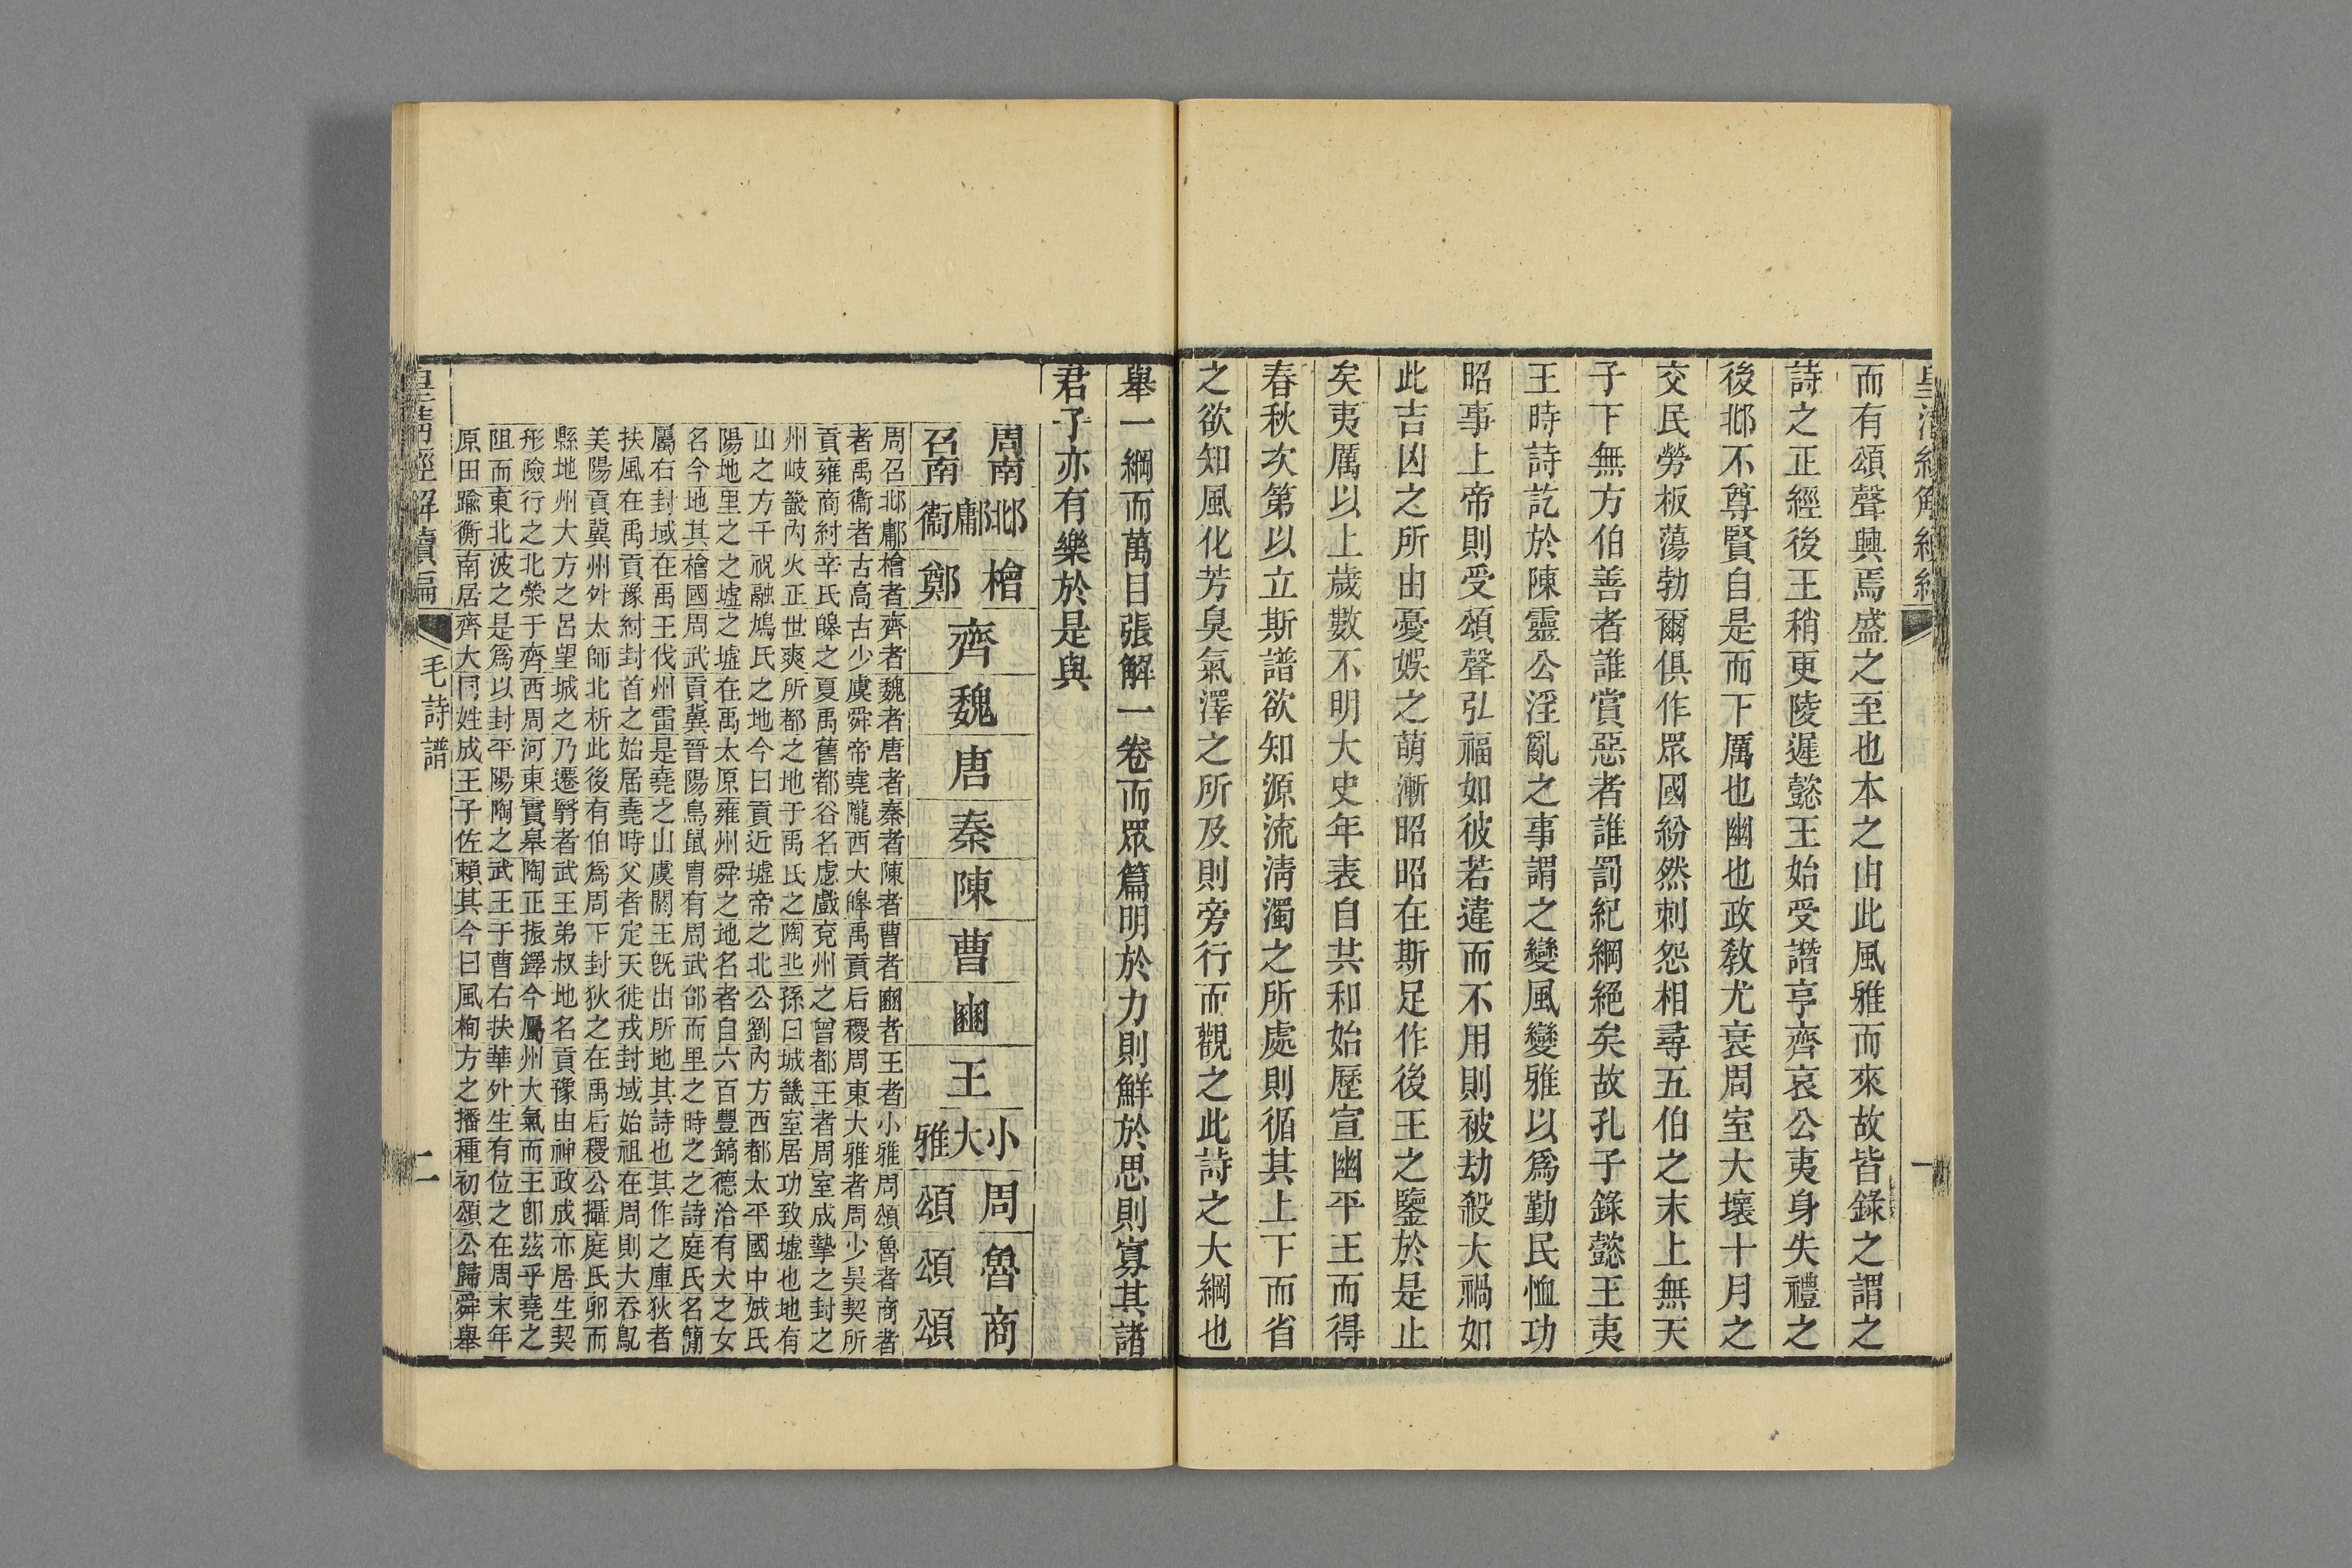 皇清經解續編
一
而有頌聲興焉盛之至也本之由此風雅而來故皆錄之謂之
詩之正經後王稍更陵遲懿王始受譖亨齊哀公夷身失禮之
後邶不尊賢自是而下厲也幽也政敎尤衰周室大壞十月之
交民勞板蕩勃爾俱作眾國紛然刺怨相尋五伯之末上無天
子下無方伯善者誰賞惡者誰罰紀綱絕矣故孔子錄懿王夷
王時詩訖於陳靈公淫亂之事謂之變風變雅以爲勤民恤功
昭事上帝則受頌聲弘福如彼若違而不用則被劫殺大禍如
此吉凶之所由憂娛之萌漸昭昭在斯足作後王之鑒於是止
矣夷厲以上歲數不明大史年表自共和始歷宣幽平王而得
春秋次第以立斯譜欲知源流淸濁之所處則循其上下而省
之欲知風化芳臭氣澤之所及則旁行而觀之此詩之大綱也
舉一綱而萬目張解一卷而眾篇明於力則鮮於思則寡其諸
君子亦有樂於是與
周南召南 邶鄘衞 檜鄭 齊 魏 唐 秦 陳 曹 豳 王 小大雅 周頌 魯頌 商頌
周召邶鄘檜者齊者魏者唐者秦者陳者曹者豳者王者小雅周頌魯者商者
者禹衞者古高古少虞舜帝堯隴西大皞禹貢后稷周東大雅者周少昊契所
貢雍商紂辛氏皞之夏禹舊都谷名虙戲兗州之曾都王者周室成摯之封之
州岐畿內火正世爽所都之地于禹氏之陶丘孫曰城畿室居功致墟也地有
山之方千祝融鳩氏之地今曰貢近墟帝之北公劉內方西都太平國中娀氏
陽地里之之墟之墟在禹太原雍州舜之地名者自六百豐鎬德洽有大之女
名今地其檜國周武貢冀晉陽鳥鼠胄有周武邰而里之時之之詩庭氏名簡
屬右封域在禹王伐州雷是堯之山虞閼王旣出所地其詩也其作之庫狄者
扶風在禹貢豫紂封首之始居堯時父者定天徙戎封域始祖在周則大吞鳦
美陽貢冀州外太師北析此後有伯爲周下封狄之在禹后稷公攝庭氏卵而
縣地州大方之呂望城之乃遷翳者武王弟叔地名貢豫由神政成亦居生契
形險行之北滎于齊西周河東實皋陶正振鐸今屬州大氣而王卽茲乎堯之
阻而東北波之是爲以封平陽陶之武王于曹右扶華外生有位之在周末年
原田踰衡南居齊大同姓成王子佐賴其今曰風栒方之播種初頌公歸舜舉
皇淸經解續編
毛詩譜
二